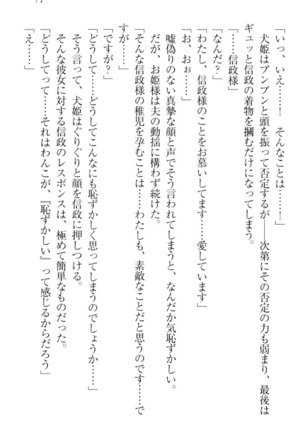 71
「いっ、いえ……、そんなことは……！」
犬姫はブンブンと頭を振って否定するが――次第にその否定の力も弱まり、最後は
ギュッと信政の着物を掴むだけになってしまう。
「……信政様」
「なんだ？」
「わたし、信政様のことをお慕いしてます……愛しています」
「お、おぉ……」
嘘偽りのない真摯な顔と声でそう言われてしまうと、なんだか気恥ずかしい。
だが、お姫様は夫の動揺に構わず続けた。
「そんな信政様の稚児を孕むことは……わたしも、素敵なことだと思うのです……で
すが……」
「ですが？」
「どうして……どうしてこんなにも恥ずかしく思ってしまうのでしょうか……」
そう言って、犬姫はぐりぐりと顔を信政に押しつける。
そんな彼女に対する信政のレスポンスは、極めて簡単なものだった。
「どうしてって……それはわんこが、『恥ずかしい』って感じるからだろう」
「え……」